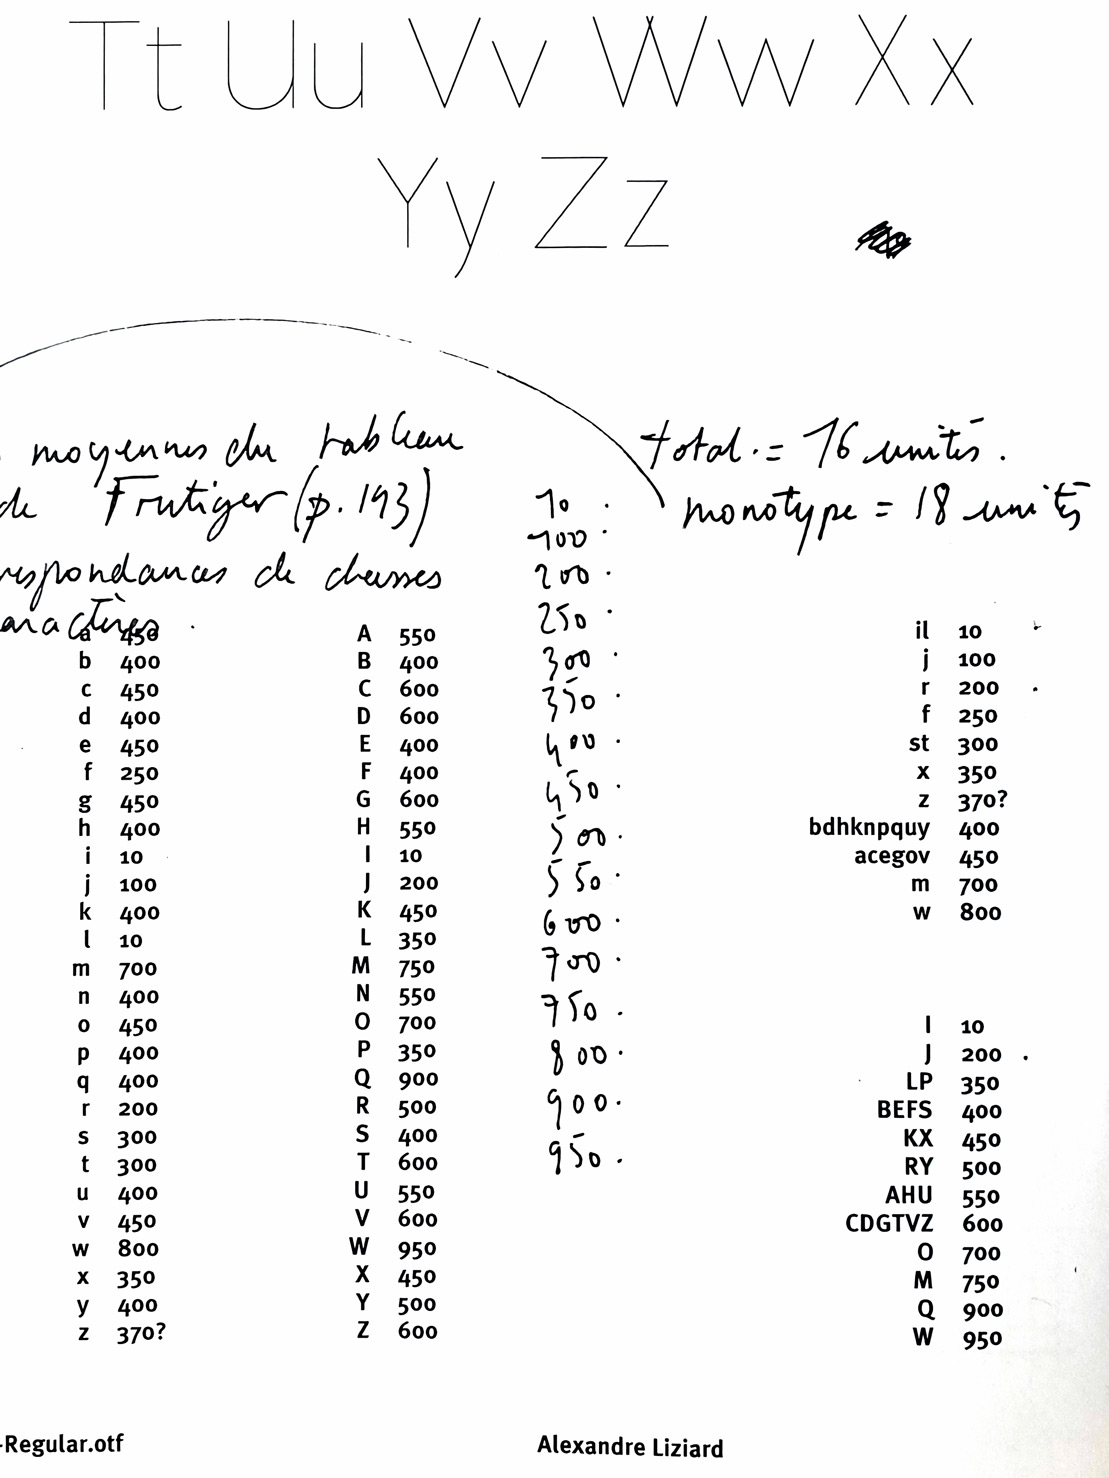 Tt Uu Vv Ww Xx
Yy Zz
moyennes du tableau
de Frutiger (p. 193)
respondances de chasses
aractères.
total. = 16 unités.
monotype = 18 unités
a 450
b 400
c 450
d 400
e 450
f 250
g 450
h 400
i 10
j 100
k 400
l 10
m 700
n 400
o 450
p 400
q 400
r 200
s 300
t 300
u 400
v 450
w 800
x 350
y 400
z 370?
A 550
B 400
C 600
D 600
E 400
F 400
G 600
H 550
I 10
J 200
K 450
L 350
M 750
N 550
O 700
P 350
Q 900
R 500
S 400
T 600
U 550
V 600
W 950
X 450
Y 500
Z 600
10 .
100 .
200 .
250 .
300 .
350 .
400 .
450 .
500 .
550 .
600 .
700 .
750 .
800 .
900 .
950 .
il 10
j 100
r 200
f 250
st 300
x 350
z 370?
bdhknpquy 400
acegov 450
m 700
w 800
I 10
J 200
LP 350
BEFS 400
KX 450
RY 500
AHU 550
CDGTVZ 600
O 700
M 750
Q 900
W 950
-Regular.otf
Alexandre Liziard